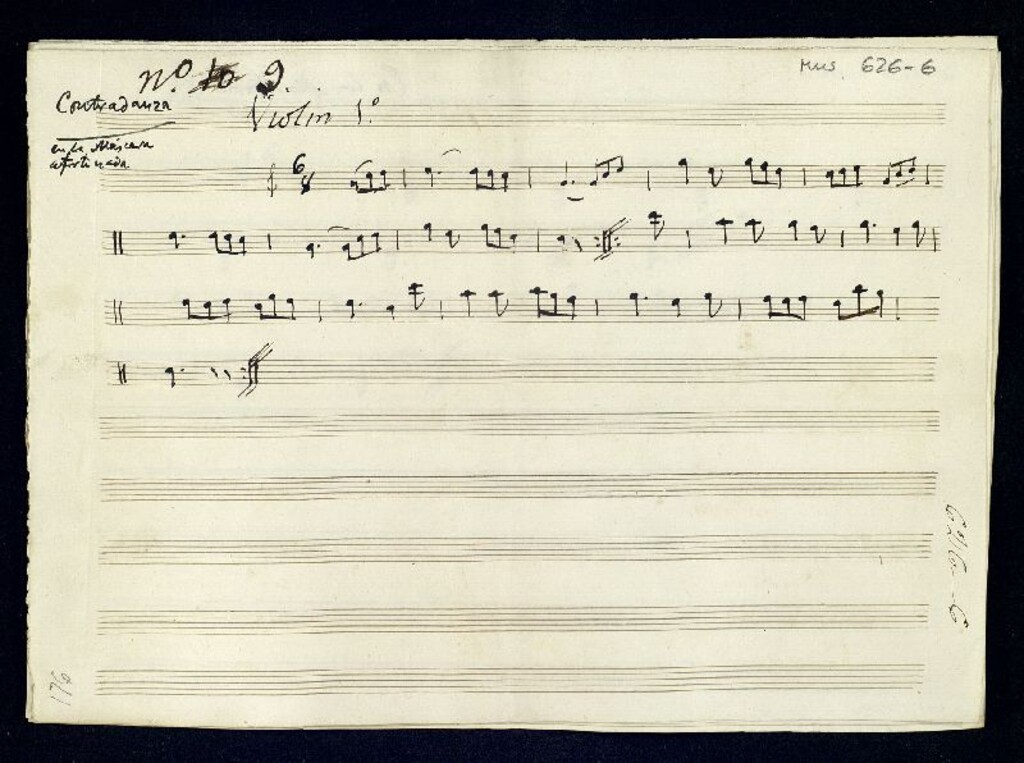 nº 10 9.
Mus 626-6
Contradanza
Violin 1º
en la Máscara
afortunada
6
8
626-6